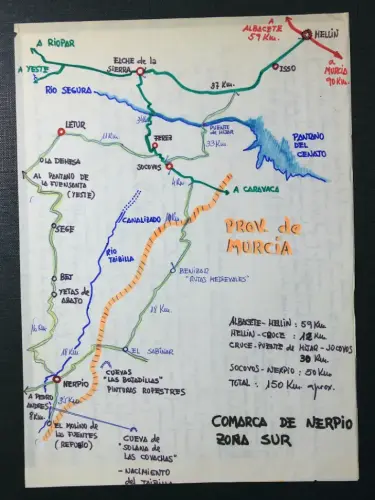 A ALBACETE
59 Km.
HELLÍN
A RIOPAR
ELCHE de la
SIERRA
ISSO
A
MURCIA
90 Km.
A YESTE
37 Km.
RÍO SEGURA
PUENTE
de HIJAR
PANTANO
DEL
CENAJO
LETUR
FEREZ
33 Km.
LA DEHESA
SOCOVOS
AL PANTANO DE
LA FUENSANTA
(YESTE)
4 Km.
A CARAVACA
CANALIZADO
PROV. de
MURCIA
SEGE
RÍO
TAIBILLA
BENIZAR
BEJ
YETAS de
ABAJO
18 Km.
ALBACETE-HELLÍN : 59 Km
HELLÍN-CRUCE : 12 Km
CRUCE-PUENTE de HIJAR-SOCOVOS
30 Km.
SOCOVOS-NERPIO : 50 Km.
TOTAL : 150 Km. aprox.
EL SABINAR
18 Km.
NERPIO
CUEVAS
"LAS BOJADILLAS"
PINTURAS RUPESTRES
A PEDRO
ANDRES
8 Km.
EL MOLINO de
LAS FUENTES
(REFUGIO)
CUEVA de
"SOLANA de
LAS COVACHAS"
COMARCA DE NERPIO
ZONA SUR
- NACIMIENTO
del TAIBILLA